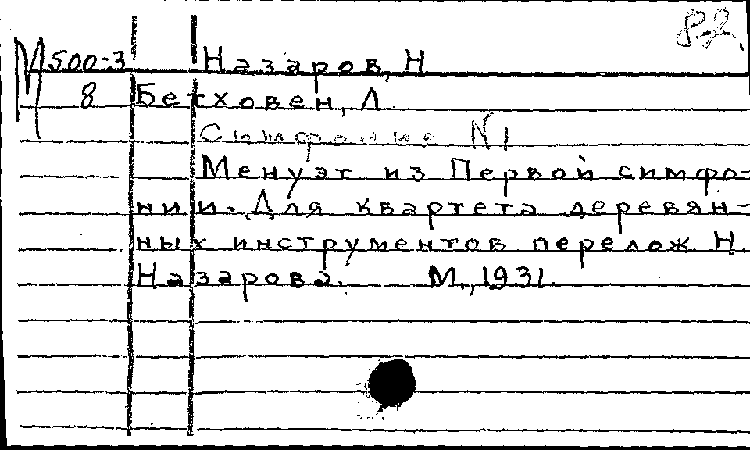 82
М 500-3 Назаров, Н
8 Бетховен, Л.
Симфония №1
Менуэт из Первой симфо-
нии. Для квартета деревян-
ных инструментов перелож Н.
Назарова. М., 1931.